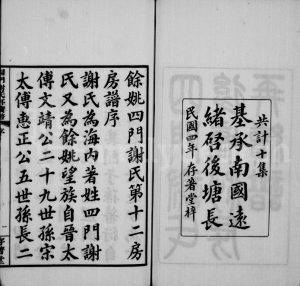 共計十集
基承南國遠
緒啓後塘長
民國四年存著堂梓
餘姚四門謝氏第十二房
房譜序
謝氏為海內著姓四門謝
氏又為餘姚望族自晉太
傅文靖公二十九世孫宗
太傅惠正公五世孫長二